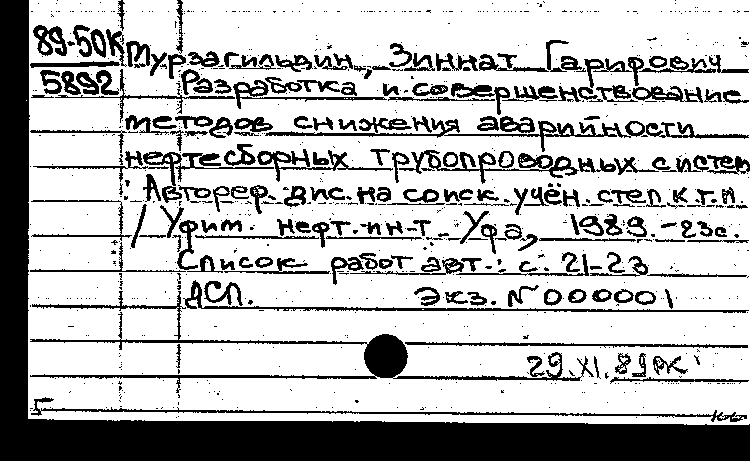 89-50К
5892
Мурзагильдин, Зиннат Гарифович
Разработка и совершенствование
методов снижения аварийности
нефтесборных трубопроводных систем
: Автореф. дис. на соиск. учён. степ. к.т.н.
/ Уфим. нефт. ин-т. Уфа, 1989. - 23с.
Список работ авт.: с. 21-23
ДСП. Экз. N 000001
29.XI.89 РК